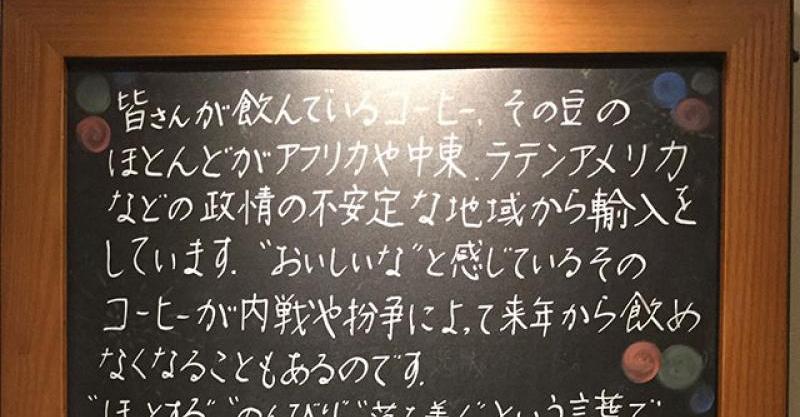 皆さんが飲んでいるコーヒー、その豆の
ほとんどがアフリカや中東、ラテンアメリカ
などの政情の不安定な地域から輸入を
しています。“おいしいな”と感じているその
コーヒーが内戦や紛争によって来年から飲め
なくなることもあるのです。
“ほっとする”“のんびり”“落ち着く”という言葉で